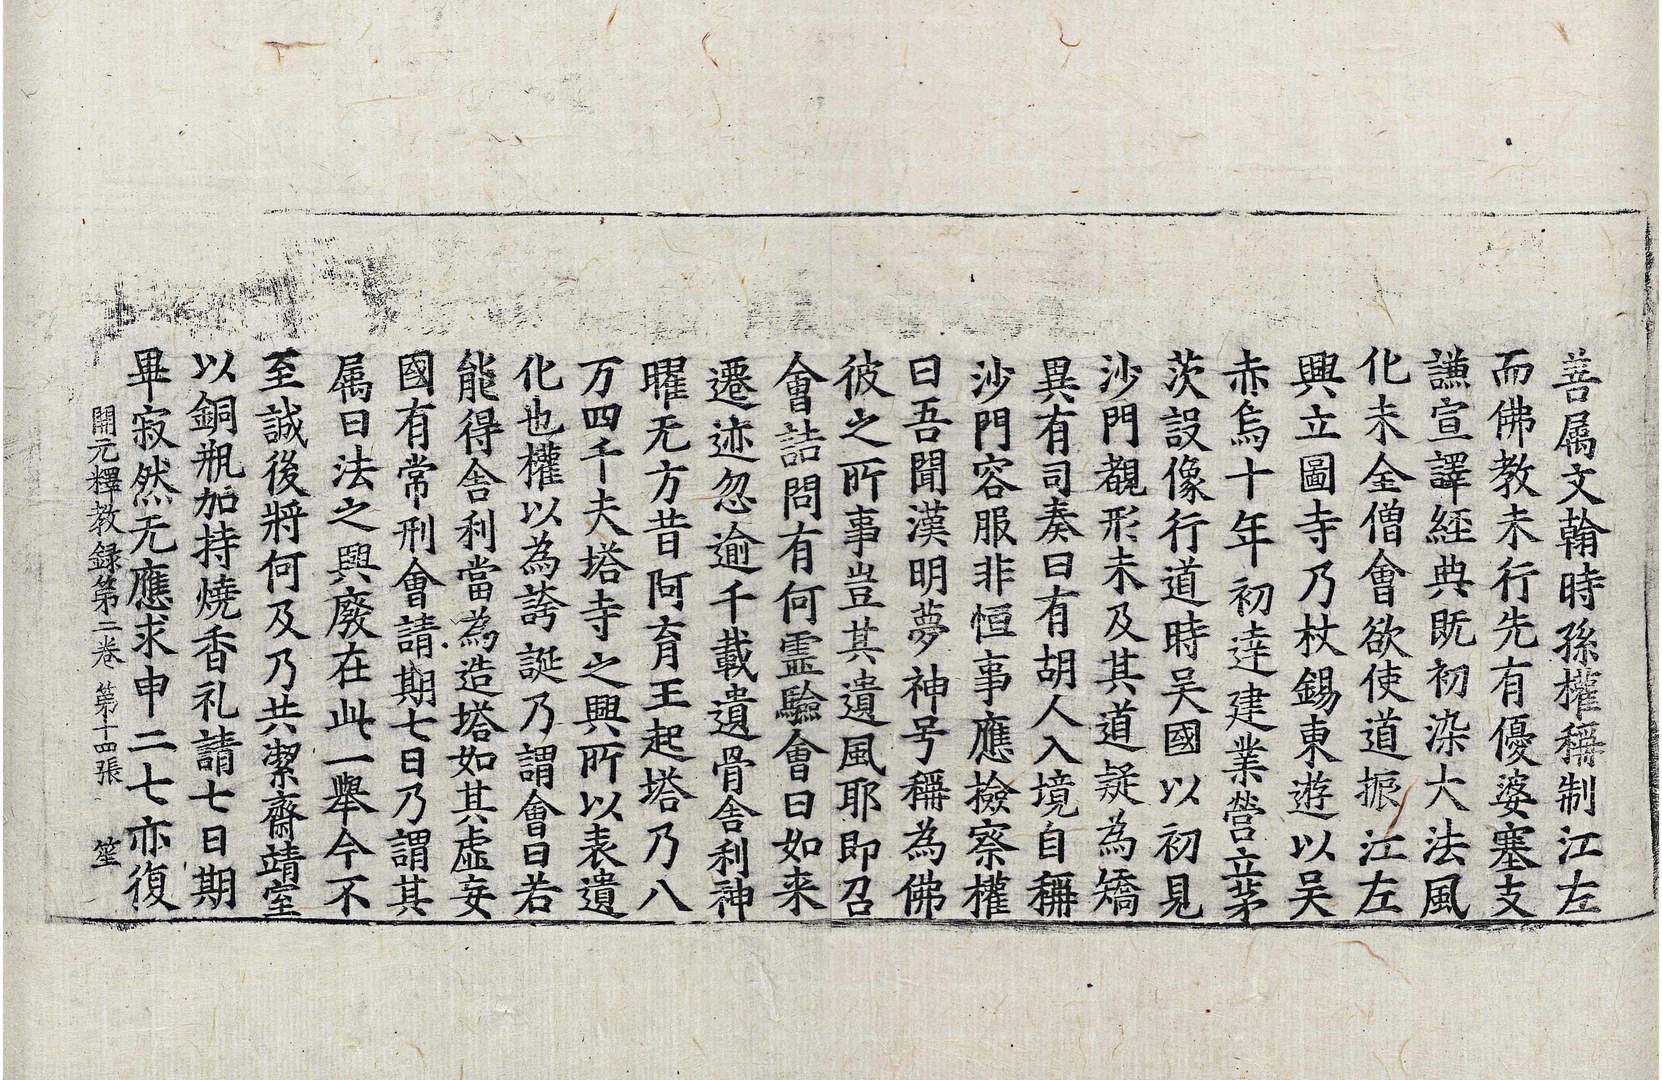 善属文翰時孫權稱制江左
而佛教未行先有優婆塞支
謙宣譯經典既初染大法風
化未全僧會欲使道振江左
興立圖寺乃杖錫東遊以吴
赤烏十年初達建業營立茅
茨設像行道時吴國以初見
沙門覩形未及其道疑為矯
異有司奏曰有胡人入境自稱
沙門容服非恒事應撿察權
曰吾聞漢明夢神号稱為佛
彼之所事豈其遺風耶即召
會詰問有何霊驗會曰如来
遷迹忽逾千載遺骨舎利神
曜无方昔阿育王起塔乃八
万四千夫塔寺之興所以表遺
化也權以為誇誕乃謂會曰若
能得舎利當為造塔如其虚妄
國有常刑會請期七日乃謂其
属曰法之興廢在此一舉今不
至誠後將何及乃共潔齋靖室
以銅瓶加持燒香礼請七日期
畢寂然无應求申二七亦復
開元釋教録第二卷 第十四張 笙